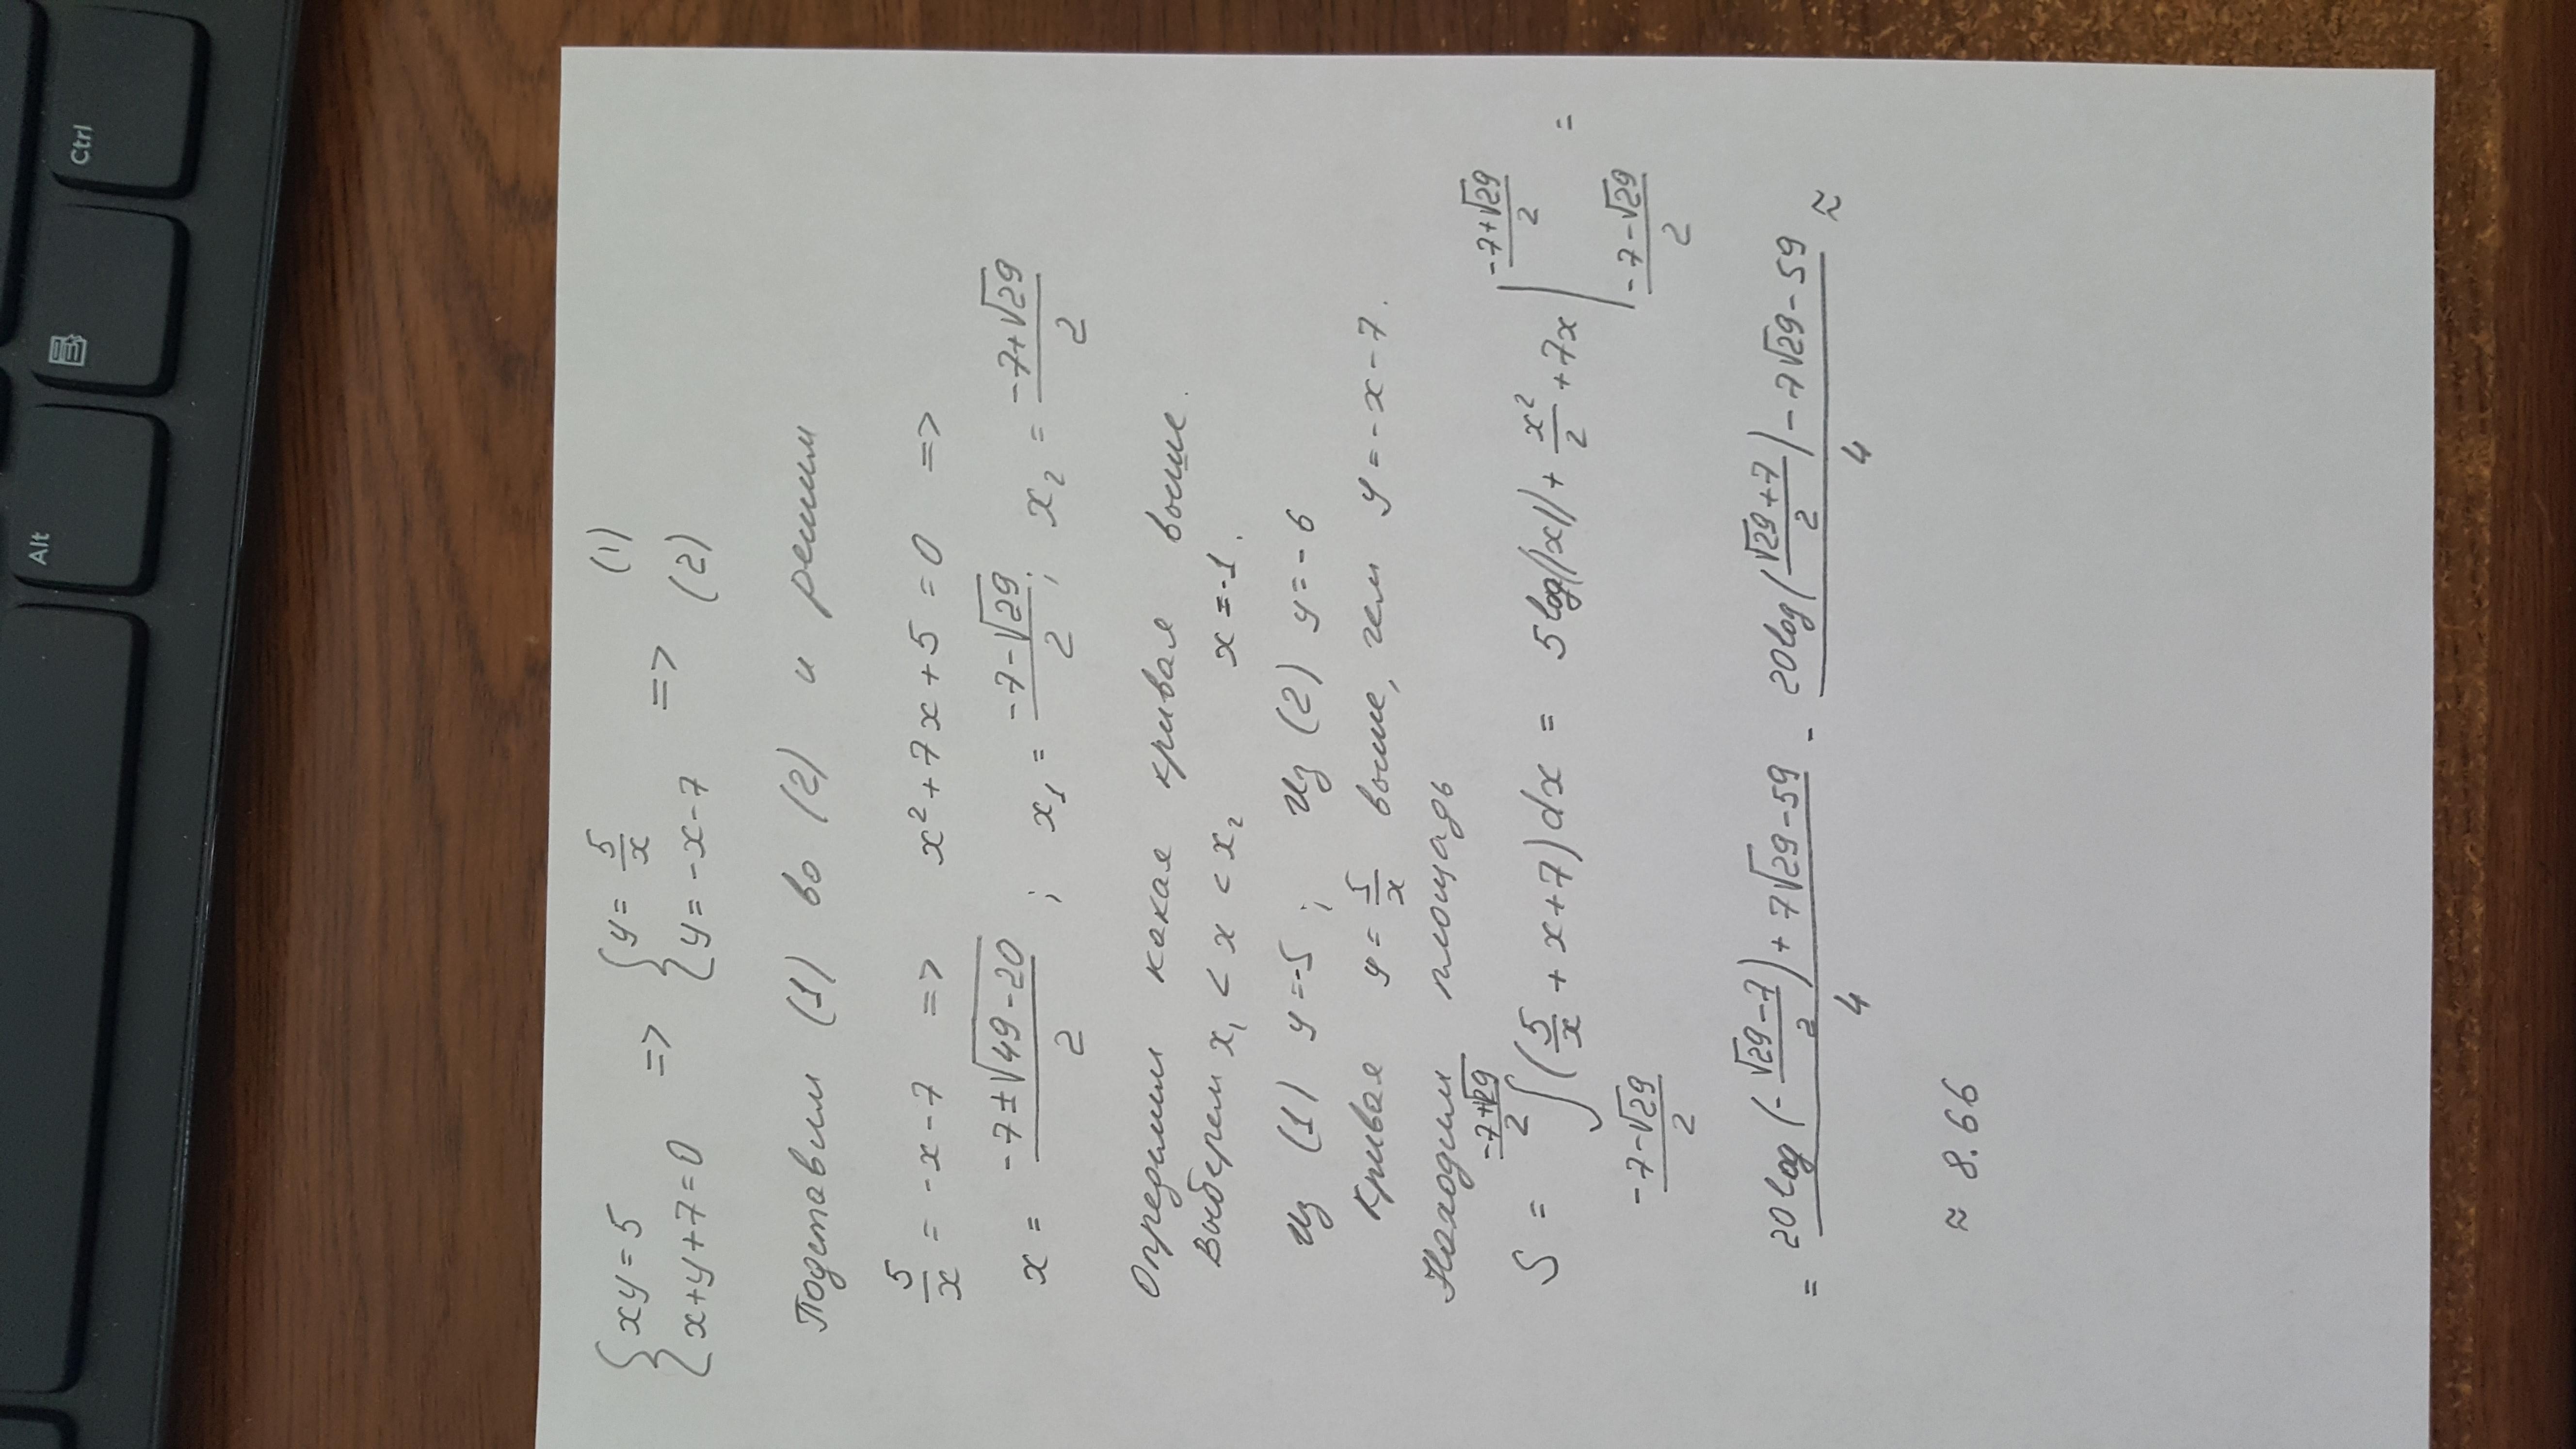 Ctrl
Alt
{ xy = 5 => { y = 5/x (1)
{ x+y+7=0 { y = -x-7 => (2)
Подставим (1) во (2) и решим
5/x = -x-7 => x² + 7x + 5 = 0 =>
x = (-7±√(49-20))/2 ; x₁ = (-7-√29)/2 ; x₂ = (-7+√29)/2
Определим какая кривая выше.
Выберем x₁ < x < x₂ x = -1.
Из (1) y = -5 ; Из (2) y = -6
Кривая y = 5/x выше, чем y = -x-7.
Находим площадь
S = ∫_{(-7-√29)/2}^{(-7+√29)/2} (5/x + x+7)dx = 5log(|x|) + x²/2 + 7x |_{(-7-√29)/2}^{(-7+√29)/2} =
= (20log(-(√29-7)/2) + 7√29-59)/4 - (20log((√29+7)/2) - 7√29-59)/4 ≈
≈ 8.66